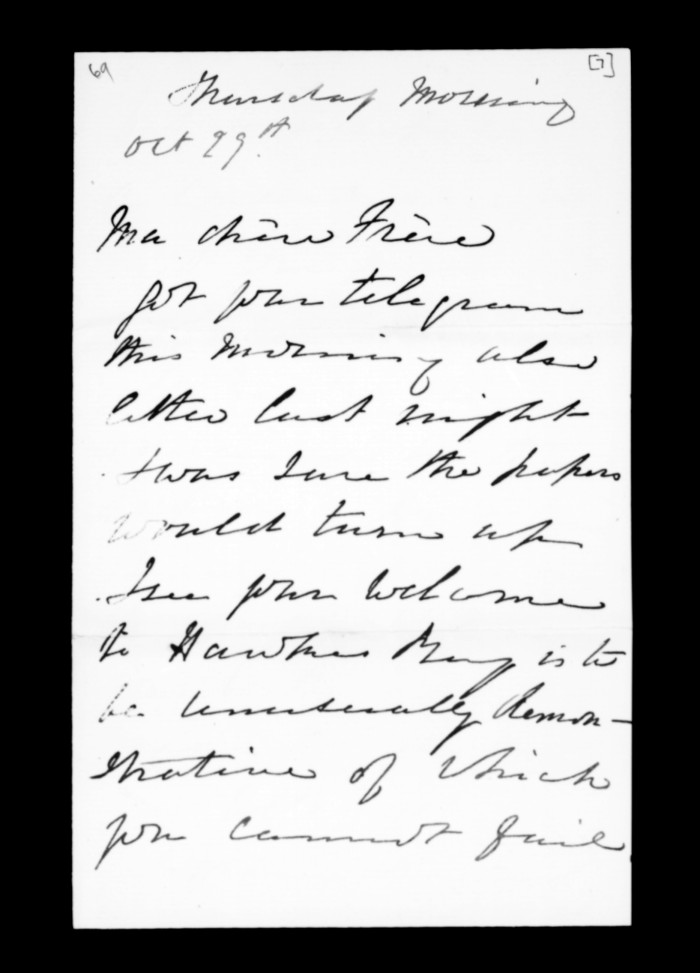 69
[7]
Thursday Morning
Oct 29th
Ma chère Frère
got your telegram
this Morning also
letter last night
I was sure the papers
would turn up
I see your Welcome
to Hawkes Bay is to
be unusually demon-
strative of which
you cannot fail